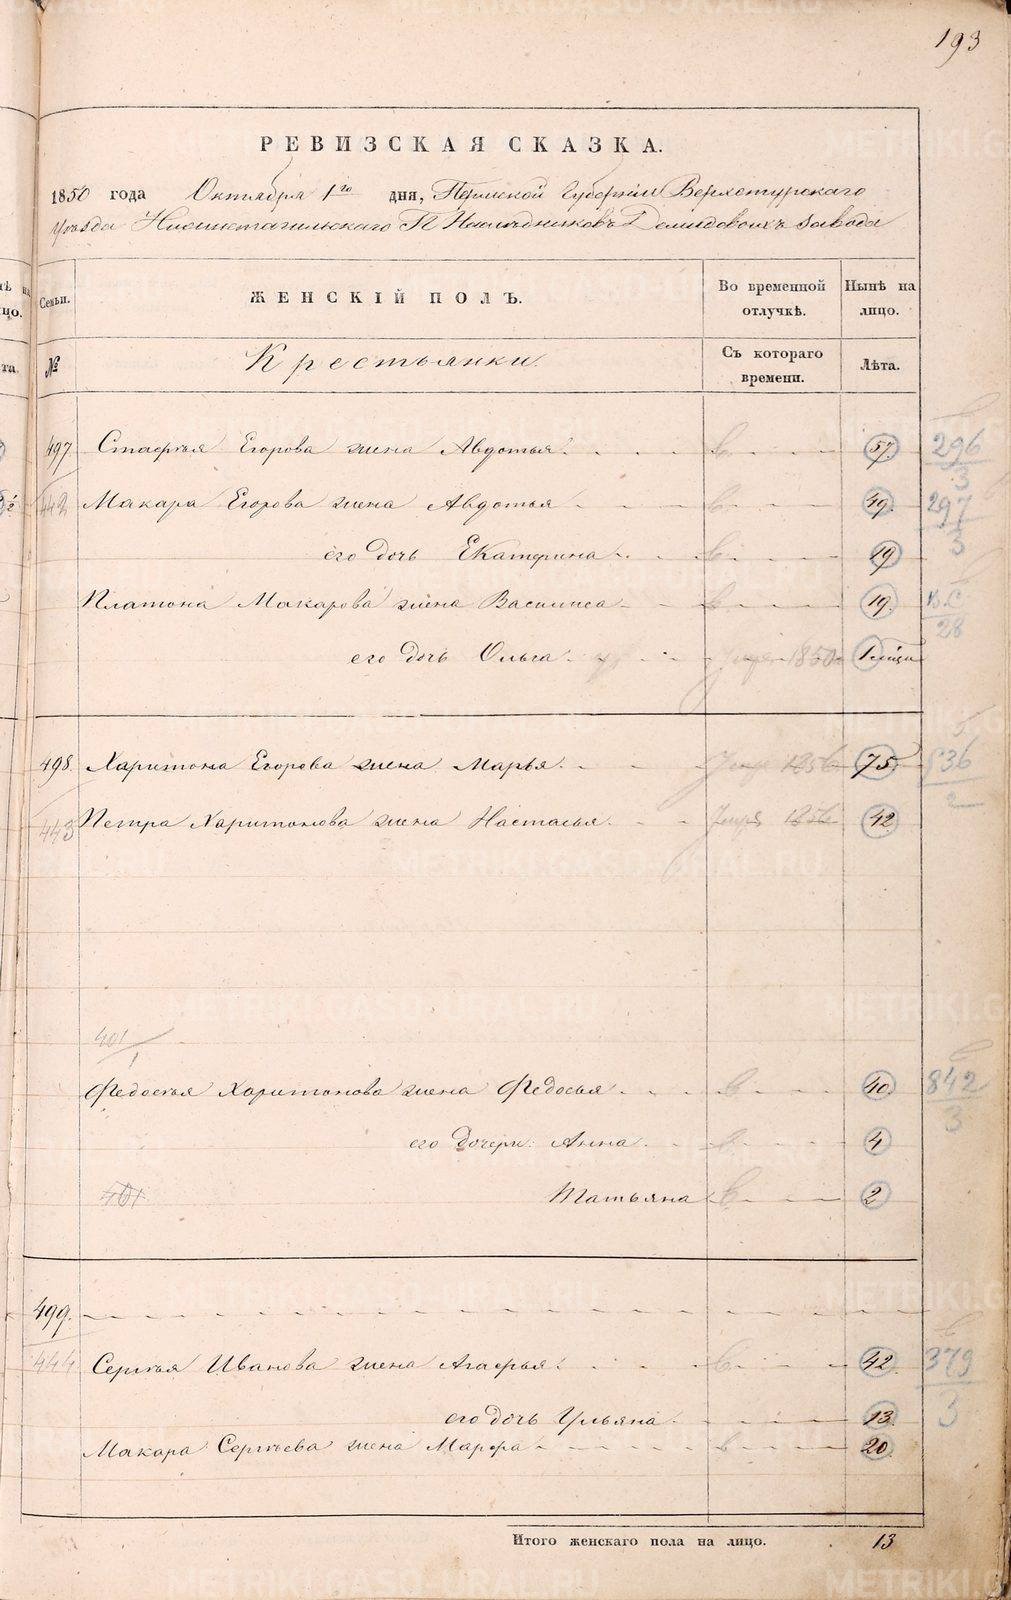 193
РЕВИЗСКАЯ СКАЗКА.
1850 года Октября 1го дня, Пермской Губернии Верхотурскаго
уѣзда Нижнетагильскаго Г. Наслѣдниковъ Демидовыхъ завода
Семьи.
ЖЕНСКІЙ ПОЛЪ.
Во временной отлучкѣ.
Нынѣ на лицо.
№
Крестьянки
Съ котораго времени.
Лѣта.
497 Стафѣя Егорова жена Авдотья 57 296/3
442 Макара Егорова жена Авдотья 49 297/3
его дочь Екатерина 19
Платона Макарова жена Василиса 19 28
его дочь Ольга 1850 1 мѣсяц
498. Харитона Егорова жена Марья 1856 75 536/2
443 Петра Харитонова жена Настасья 1856 42
401/1
Федосѣя Харитонова жена Федосья 40 842/3
его дочери Анна 4
401 Татьяна 2
499.
444 Сергѣя Иванова жена Агафья 42 379/3
его дочь Ульяна 13
Макара Сергѣева жена Марфа 20
Итого женскаго пола на лицо. 13
METRIKI.GASO-URAL.RU